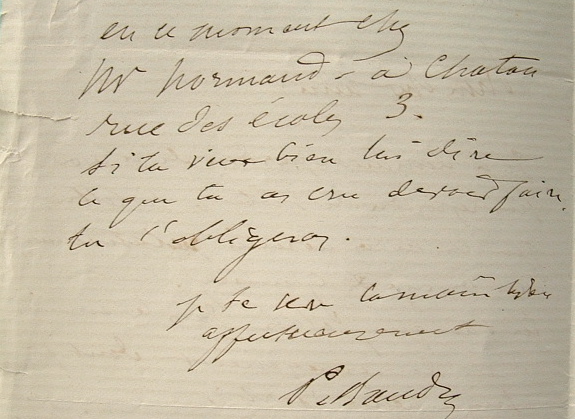 en ce moment chez
Mr Normand - à Chatou
rue des écoles 3.
si tu veux bien lui dire
ce que tu as cru devoir faire,
tu l'obligeras.
je te serre la main bien
affectueusement
P. Baudry